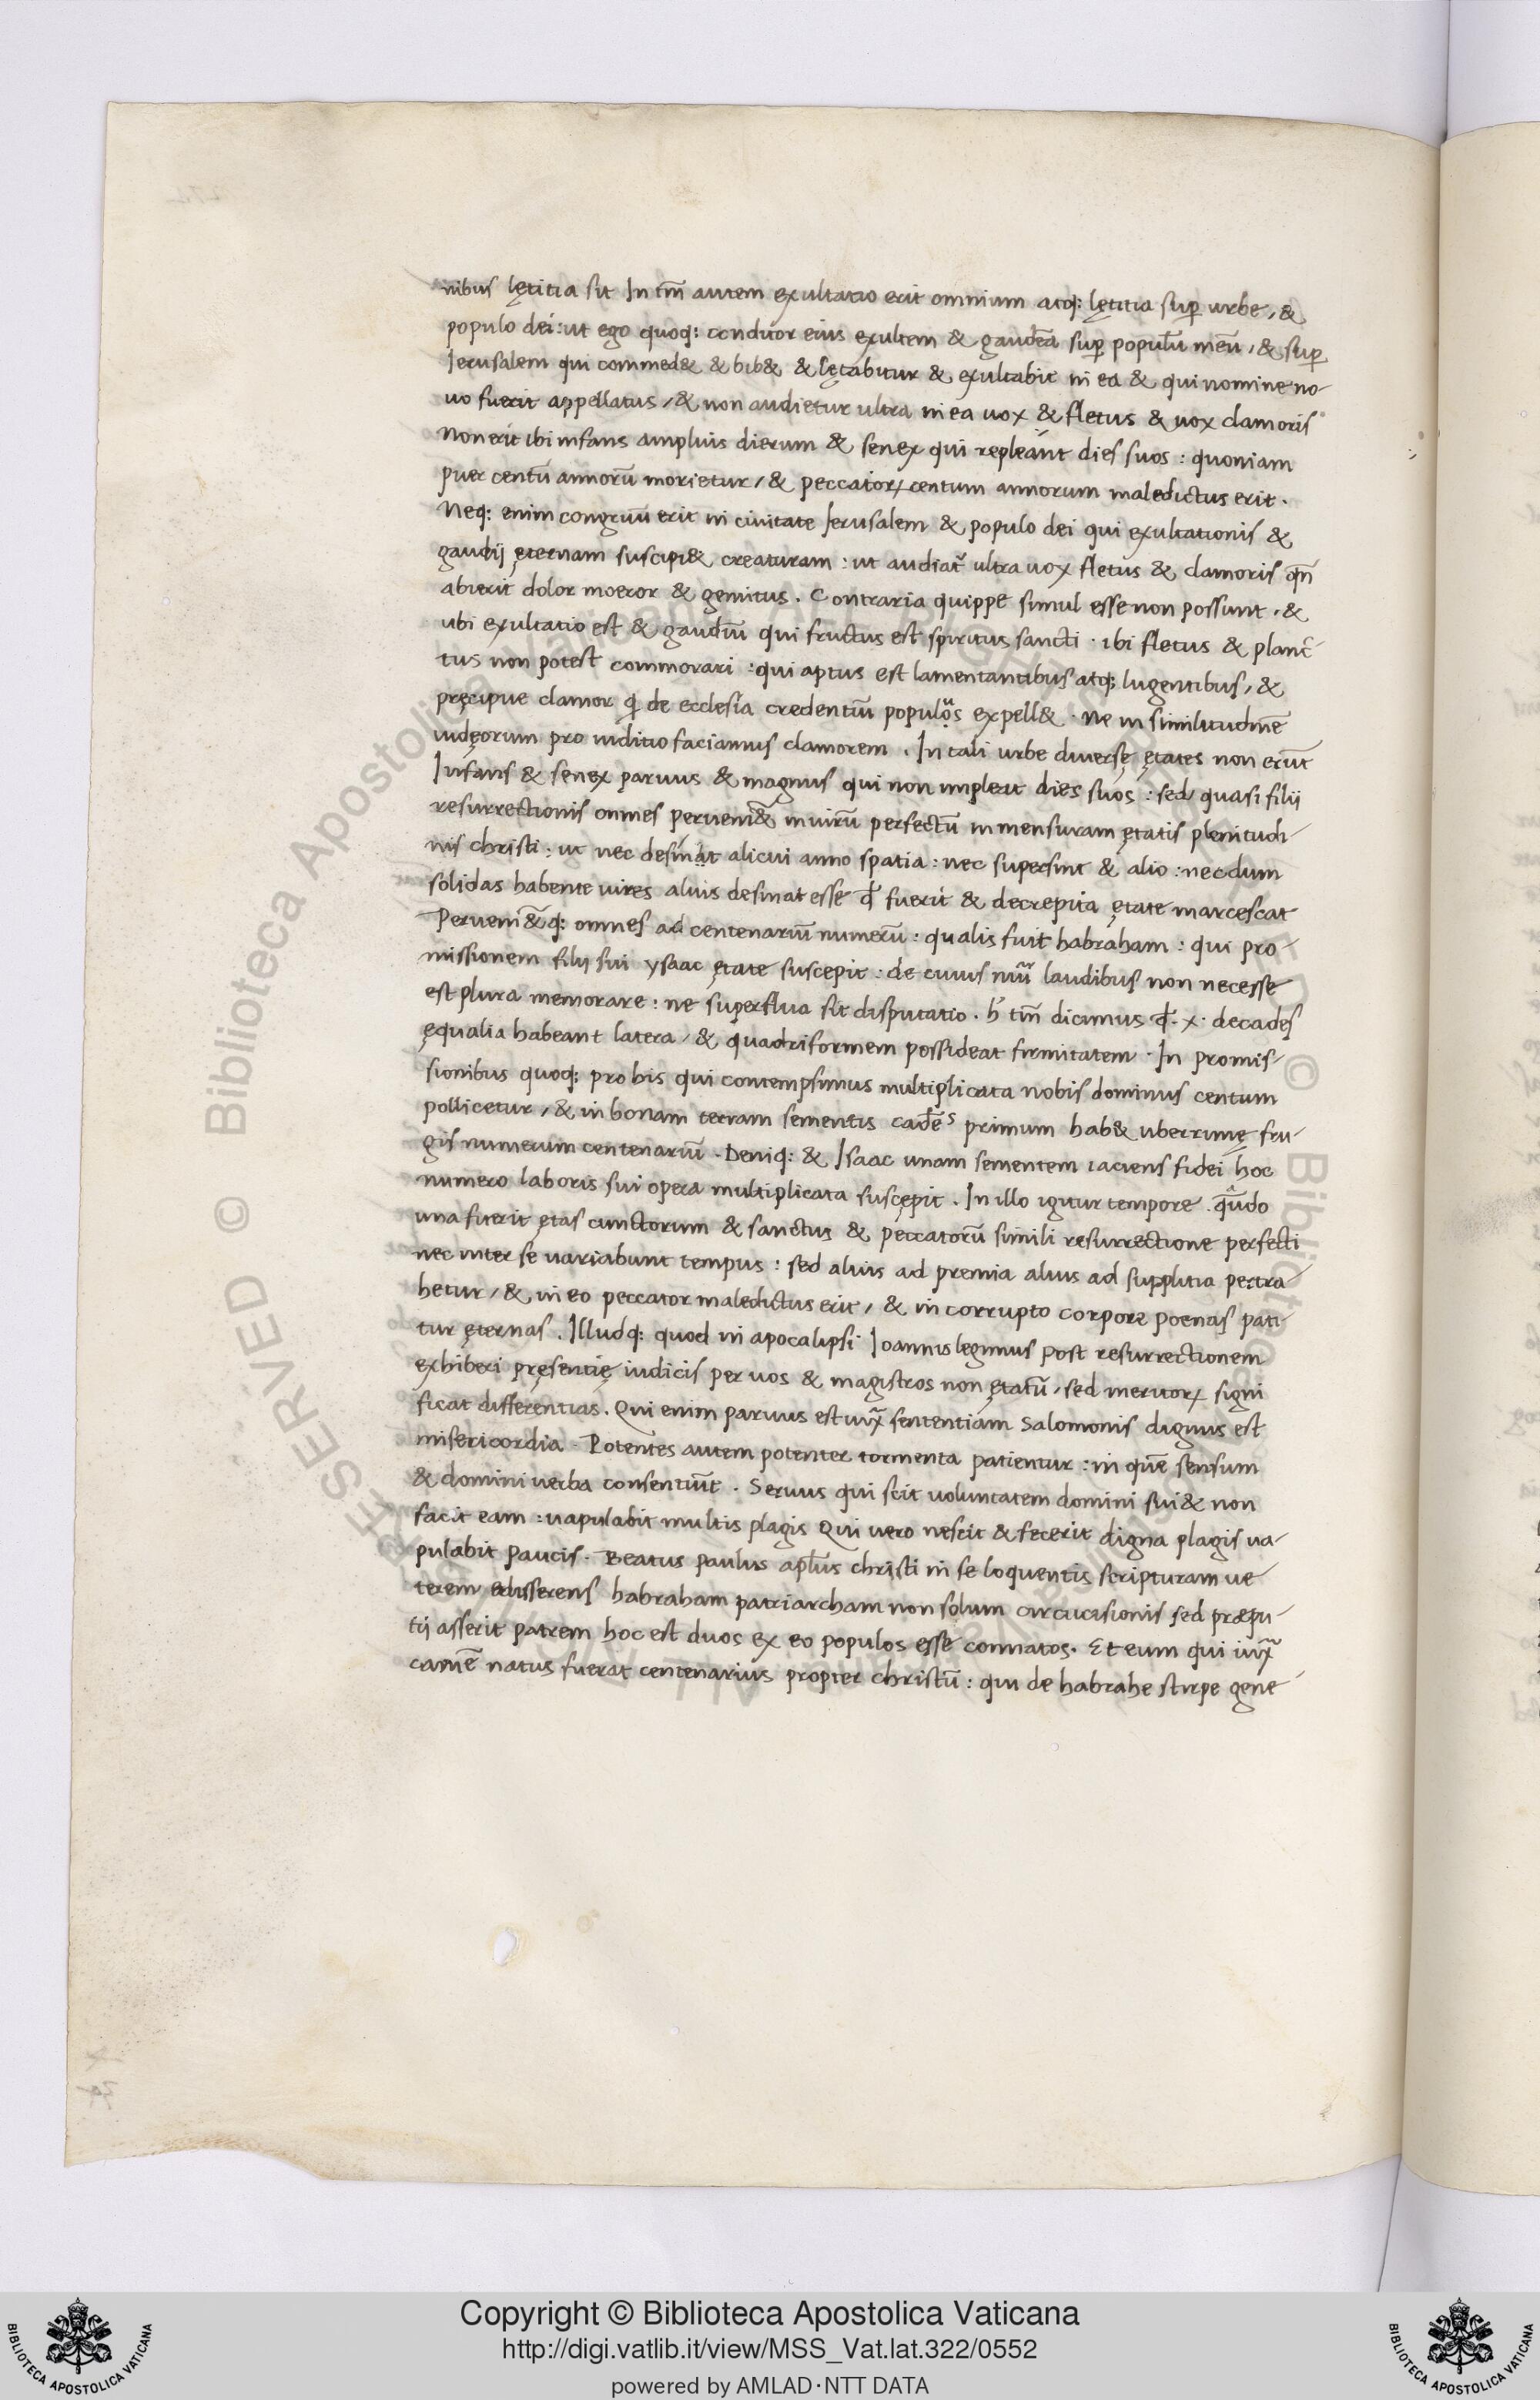 nibus lętitia sit In tm̄ autem exultatio erit omnium atq: lętitia sup̱ urbe, &
populo dei: ut ego quoq: conditor eius exultem & gaudēa sup̱ populū meū, & sup̱
Ierusalem qui commed& & bib& & lętabitur & exultabit in ea & qui nomine no-
uo fuerit appellatus, & non audietur ultra in ea uox & fletus & uox clamoris
Non erit ibi infans amplius dierum & senex qui repleant dies suos: quoniam
puer centū annorū morietur, & peccatoꝝ centum annorum maledictus erit.
Neq: enim congruū erit in ciuitate Ierusalem & populo dei qui exultationis &
gaudij ęternam suscipi& creaturam: ut audiat᷑ ultra uox fletus & clamoris qn̄
abierit dolor moeror & gemitus. Contraria quippe simul esse non possunt, &
ubi exultatio est & gaudiū qui fructus est spiritus sancti · ibi fletus & planc̄-
tus non potest commorari: qui aptus est lamentantibus atq; lugentibus, &
pręcipue clamor q̇ de ecclesia credentiū populos expell& · Ne in similitudinē
iudęorum pro iuditio faciamus clamorem. In tali urbe diuersę ętates non erūt
Infans & senex paruus & magnus qui non impleat dies suos: sed quasi filij
resurrectionis omnes perueni&̄ in uirū perfectū in mensuram ętatis plenitudi-
nis christi: ut nec desinat alicui anno spatia: nec supersint & alio: nec dum
solidas habente uires alius desinat esse qd̄ fuerit & decrepita ętate marcescat
Perueni&̄q: omnes ad centenariū numerū: qualis fuit habraham: qui pro-
missionem filij sui ysaac ętate suscepit: de cuius nūi laudibus non necesse
est plura memorare: ne superflua sit disputatio. h̓ tm̄ dicimus qd̄ · x · decades
ęqualia habeant latera, & quadriformem possideat firmitatem · In promis-
sionibus quoq: pro his qui contempsimus multiplicata nobis dominus centum
pollicetur, & in bonam terram sementis cadēs primum hab& uberrimę fru-
gis numerum centenariū · Deniq: & Isaac unam sementem iaciens fidei hoc
numero laboris sui opera multiplicata suscępit. In illo igitur tempore quādo
una fuerit ętas cunctorum & sanctus & peccatorū simili resurrectione perfecti
nec inter se uariabunt tempus: sed alius ad premia alius ad supplitia pertra-
hetur, & in eo peccator maledictus erit, & in corrupto corpore poenas pati-
tur ęternas. Illudq: quod in apocalipsi Ioannis legimus post resurrectionem
exhiberi pręsentię iudicis per uos & magistros non ętatū, sed meritoꝝ signi
ficat differentias. Qui enim paruus est iux̄ sententiam Salomonis dignus est
misericordia · Potentes autem potenter tormenta patientur: in quē sensum
& domini uerba consentiūt · Seruus qui scit uoluntatem domini sui & non
facit eam: uapulabit multis plagis Qui uero nescit & fecerit digna plagis ua-
pulabit paucis. Beatus paulus apl̄us christi in se loquentis scripturam ue-
terem edisserens habraham patriarcham non solum circucisionis sed præpu-
tij asserit patrem hoc est duos ex eo populos esse connatos. Et eum qui iux̄
carnē natus fuerat centenarius propter christū: qui de habrahe stirpe gene-
RESERVED © Biblioteca Apostolica Vaticana
Copyright © Biblioteca Apostolica Vaticana
http://digi.vatlib.it/view/MSS_Vat.lat.322/0552
powered by AMLAD·NTT DATA
BIBLIOTECA APOSTOLICA VATICANA
BIBLIOTECA APOSTOLICA VATICANA